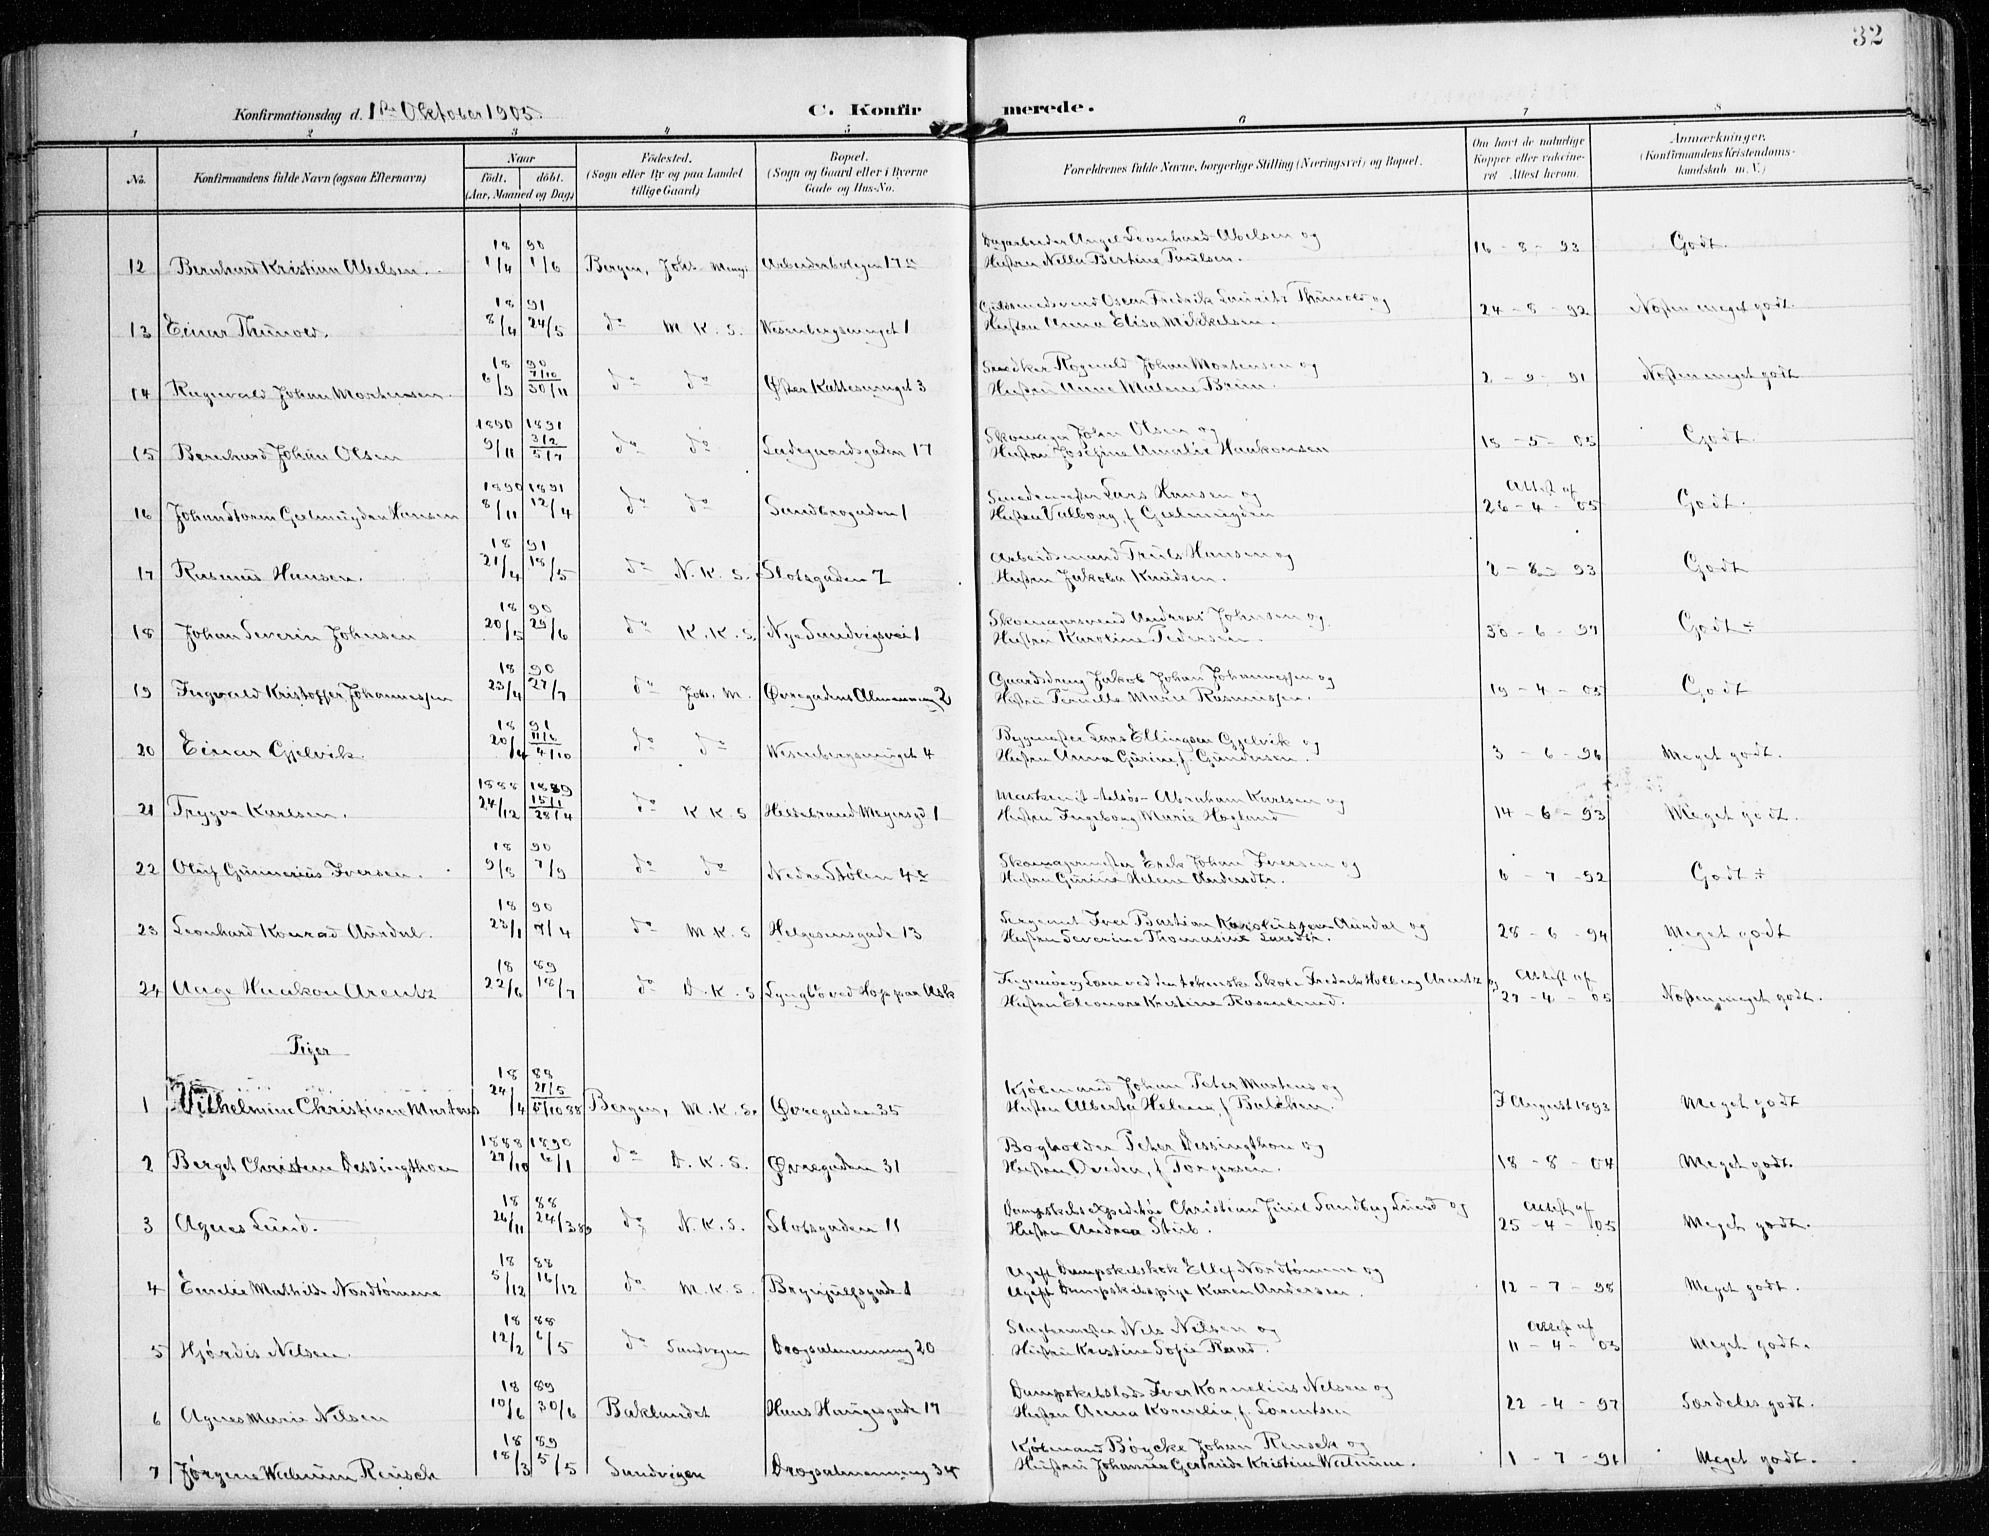 32
Konfirmationsdag d. 1ste Oktober 1905.
C. Konfirmerede.
1 2 3 4 5 6 7 8
No. Konfirmandens fulde Navn (ogsaa Efternavn) Naar født. døbt. (Aar, Maaned og Dag) Fødested. (Sogn eller By og paa Landet tillige Gaard) Bopæl. (Sogn og Gaard eller i Byerne Gade og Hus-No. Forældrenes fulde Navne, borgerlige Stilling (Næringsvei) og Bopæl. Om havt de naturlige Kopper eller vakcineret Attest herom. Anmærkninger. (Konfirmandens Kristendomskundskab m. V.)
12 Bernhard Kristian Abelsen. 18 90 1/4 1/6 Bergen, Johs Meng. Arbeiderboligen 17 Dagarbeider Angel Leonhard Abelsen og Hustru Nella Bertine Paulsen. 16-8-93 Godt.
13 Einar Thunold. 18 91 8/4 24/5 do M. K. S. Wesenbergsmuget 1 Guldsmedsvend Oscar Fredrik Laurits Thunold og Hustru Anna Elisa Mikkelsen. 24-8-92 Næsten meget godt.
14 Ragnvald Johan Mortensen. 18 90 6/9 7/10 30/11 do do Østre Kattesmuget 3 Snedker Rognald Johan Mortensen og Hustru Anne Malene Brun. 2-9-91 Næsten meget godt
15 Bernhard Johan Olsen 1890 1891 9/11 3/2 5/7 do do Ladegaardsgaden 17 Skomager John Olsen og Hustru Josefine Amalie Haakonsen 18-5-05 Godt.
16 Johan Storm Geelmuyden Hansen 1890 1891 8/11 12/4 do do Sandbrogaden 1 Smedemester Lars Hansen og Hustru Valborg, f Geelmuyden Attest af 26-4-05 Godt.
17 Rasmus Hansen. 18 91 21/4 18/5 do N. K. S. Slotsgaden 7 Arbeidsmand Truls Hansen og Hustru Jakoba Knudsen. 2-8-93 Godt
18 Johan Severin Johnsen 18 90 20/5 29/6 do K. K. S. Nye Sandvigsvei 1 Skomagersvend Andreas Johnsen og Hustru Karoline Pedersen. 30-6-97 Godt ÷
19 Ingvald Kristoffer Johannessen 18 90 23/4 27/7 do Johs. M. Øvregadens Almenning 2 Gaardsdreng Jakob Johan Johannessen og Hustru Pernella Marie Rasmussen. 19-4-05 Godt
20 Einar Gjelvik. 18 91 20/4 11/6 4/10 do do Wesenbergsmuget 4 Bygmester Lars Ellingsen Gjelvik og Hustru Anna Gurine, f. Gundersen. 3-6-96 Meget godt.
21 Trygve Karlsen. 1888 1889 24/12 15/1 28/4 do K K S Hildebrand Meyersgd 1 Maskenist Abraham Karlsen og Hustru Ingeborg Marie Hogland 14-6-93 Meget godt.
22 Oluf Gunnerius Iversen. 18 90 9/8 7/9 do do Nedre Stølen 4 Skomagermester Erik Johan Iversen og Hustru Gurine Helene Andersdtr. 6-7-92 Godt ÷
23 Leonhard Konrad Aurdal. 18 90 23/1 7/4 do M. K. S Helgesensgade 13 Sergeant Iver Bastian Karolussen Aurdal og Hustru Severine Thomasine Larsdtr. 28-6-94 Meget godt
24 Aage Haakon Arentz 18 89 22/6 18/7 do D. K. S Lyngbø ved Hop paa Ask Ingeniør og Lærer ved den tekniske Skole Fredrik Holberg Arentz og Hustru Eleonora Kristine Rosenlund. Attest af 27-4-05 Næsten meget godt.
Piger
1 Vilhelmine Christiane Martens 18 88 24/4 21/5 5/10 88 Bergen, M. K. S. Øvregaden 35 Kjøbmand Johan Peter Martens og Hustru Alberta Helene, f Balchen. 7 August 1893 Meget godt
2 Berget Christine Dessingthon 1888 1890 27/10 6/1 do D. K. S. Øvregaden 31 Bogholder Peter Dessingthon og Hustru Oveden, f Torgersen. 18-8-04 Meget godt.
3 Agnes Lund. 18 88 26/11 24/3 89 do N. K. S. Slotsgaden 11 Dampskibsexpeditør Christian Juul Sandberg Lund og Hustru Andrea Stub. Attest af 25-4-05 Meget godt.
4 Emelie Mathilde Nordtømme 18 88 5/12 16/12 do M. K. S. Brynjulfsgade 1 Ugift Dampskibskok Ellef Nordtømme og Ugift Dampskibspige Karen Andersen. 12-7-98 Meget godt.
5 Hjørdis Nelsen. 18 88 12/2 6/5 do Sandvigen Dregsalmenning 20 Slagtermester Nels Nelsen og Hustru Kristine Sofie Raad. Attest af 11-4-03 Meget godt.
6 Agnes Marie Nilsen 18 89 10/6 30/6 Baklandet Hans Haugesgade 17 Dampskibslods Iver Kornelius Nelsen og Hustru Anna Kornelia, f. Lorentsen 22-4-97 Særdeles godt.
7 Jørgine Wallum Reusch 18 89 18/3 5/5 Sandvigen Dregsalmenning 34 Kjøbmand Bøycke Johan Reusch og Hustru Johanna Gertrude Kristine Wallum. 1-7-91 Meget godt.